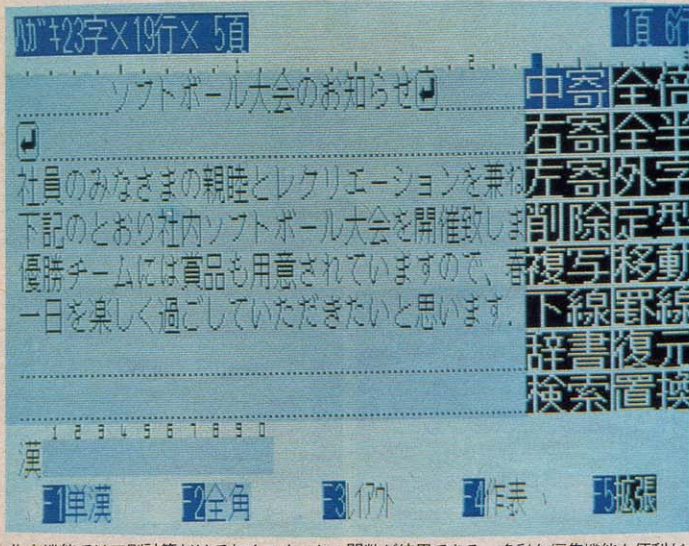 ﾊｶﾞｷ23字×19行× 5頁
1頁 6行
ソフトボール大会のお知らせ
社員のみなさまの親睦とレクリエーションを兼ね
下記のとおり社内ソフトボール大会を開催致しま
優勝チームには賞品も用意されていますので、春
一日を楽しく過ごしていただきたいと思います.
中寄 全倍
右寄 全半
左寄 外字
削除 定型
複写 移動
下線 罫線
辞書 復元
検索 置換
1 2 3 4 5 6 7 8 9 0
漢
F1単漢 F2全角 F3ﾚｲｱｳﾄ F4作表 F5拡張